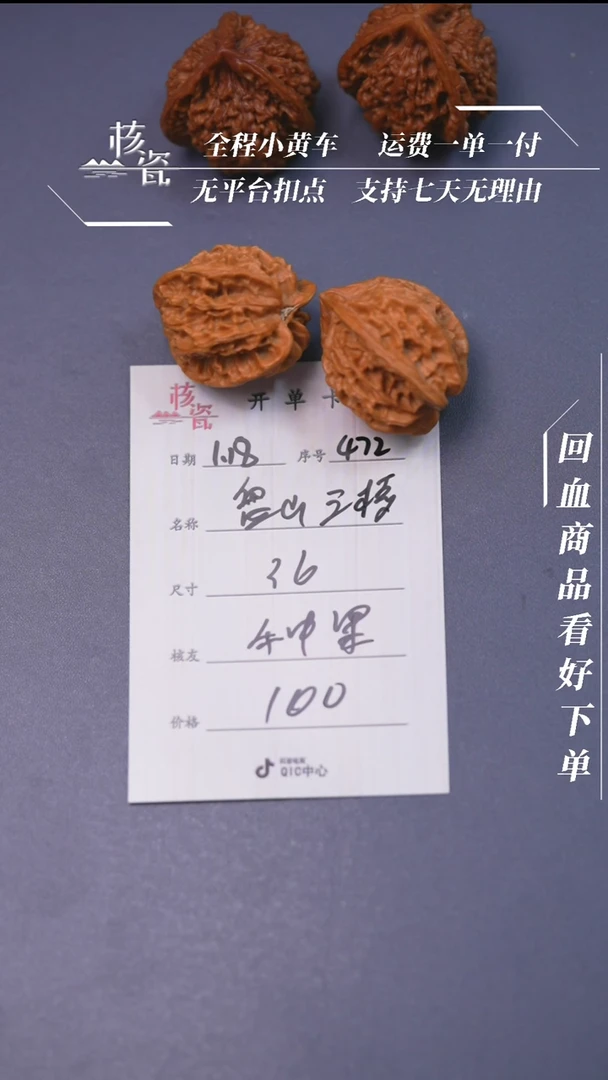 核瓷
全程小黄车 运费一单一付
无平台扣点 支持七天无理由
回血商品看好下单
核瓷
开单卡
日期 1.18 序号 472
名称 山三棱
尺寸 36
核友
价格 100
抖音电商
QIC中心